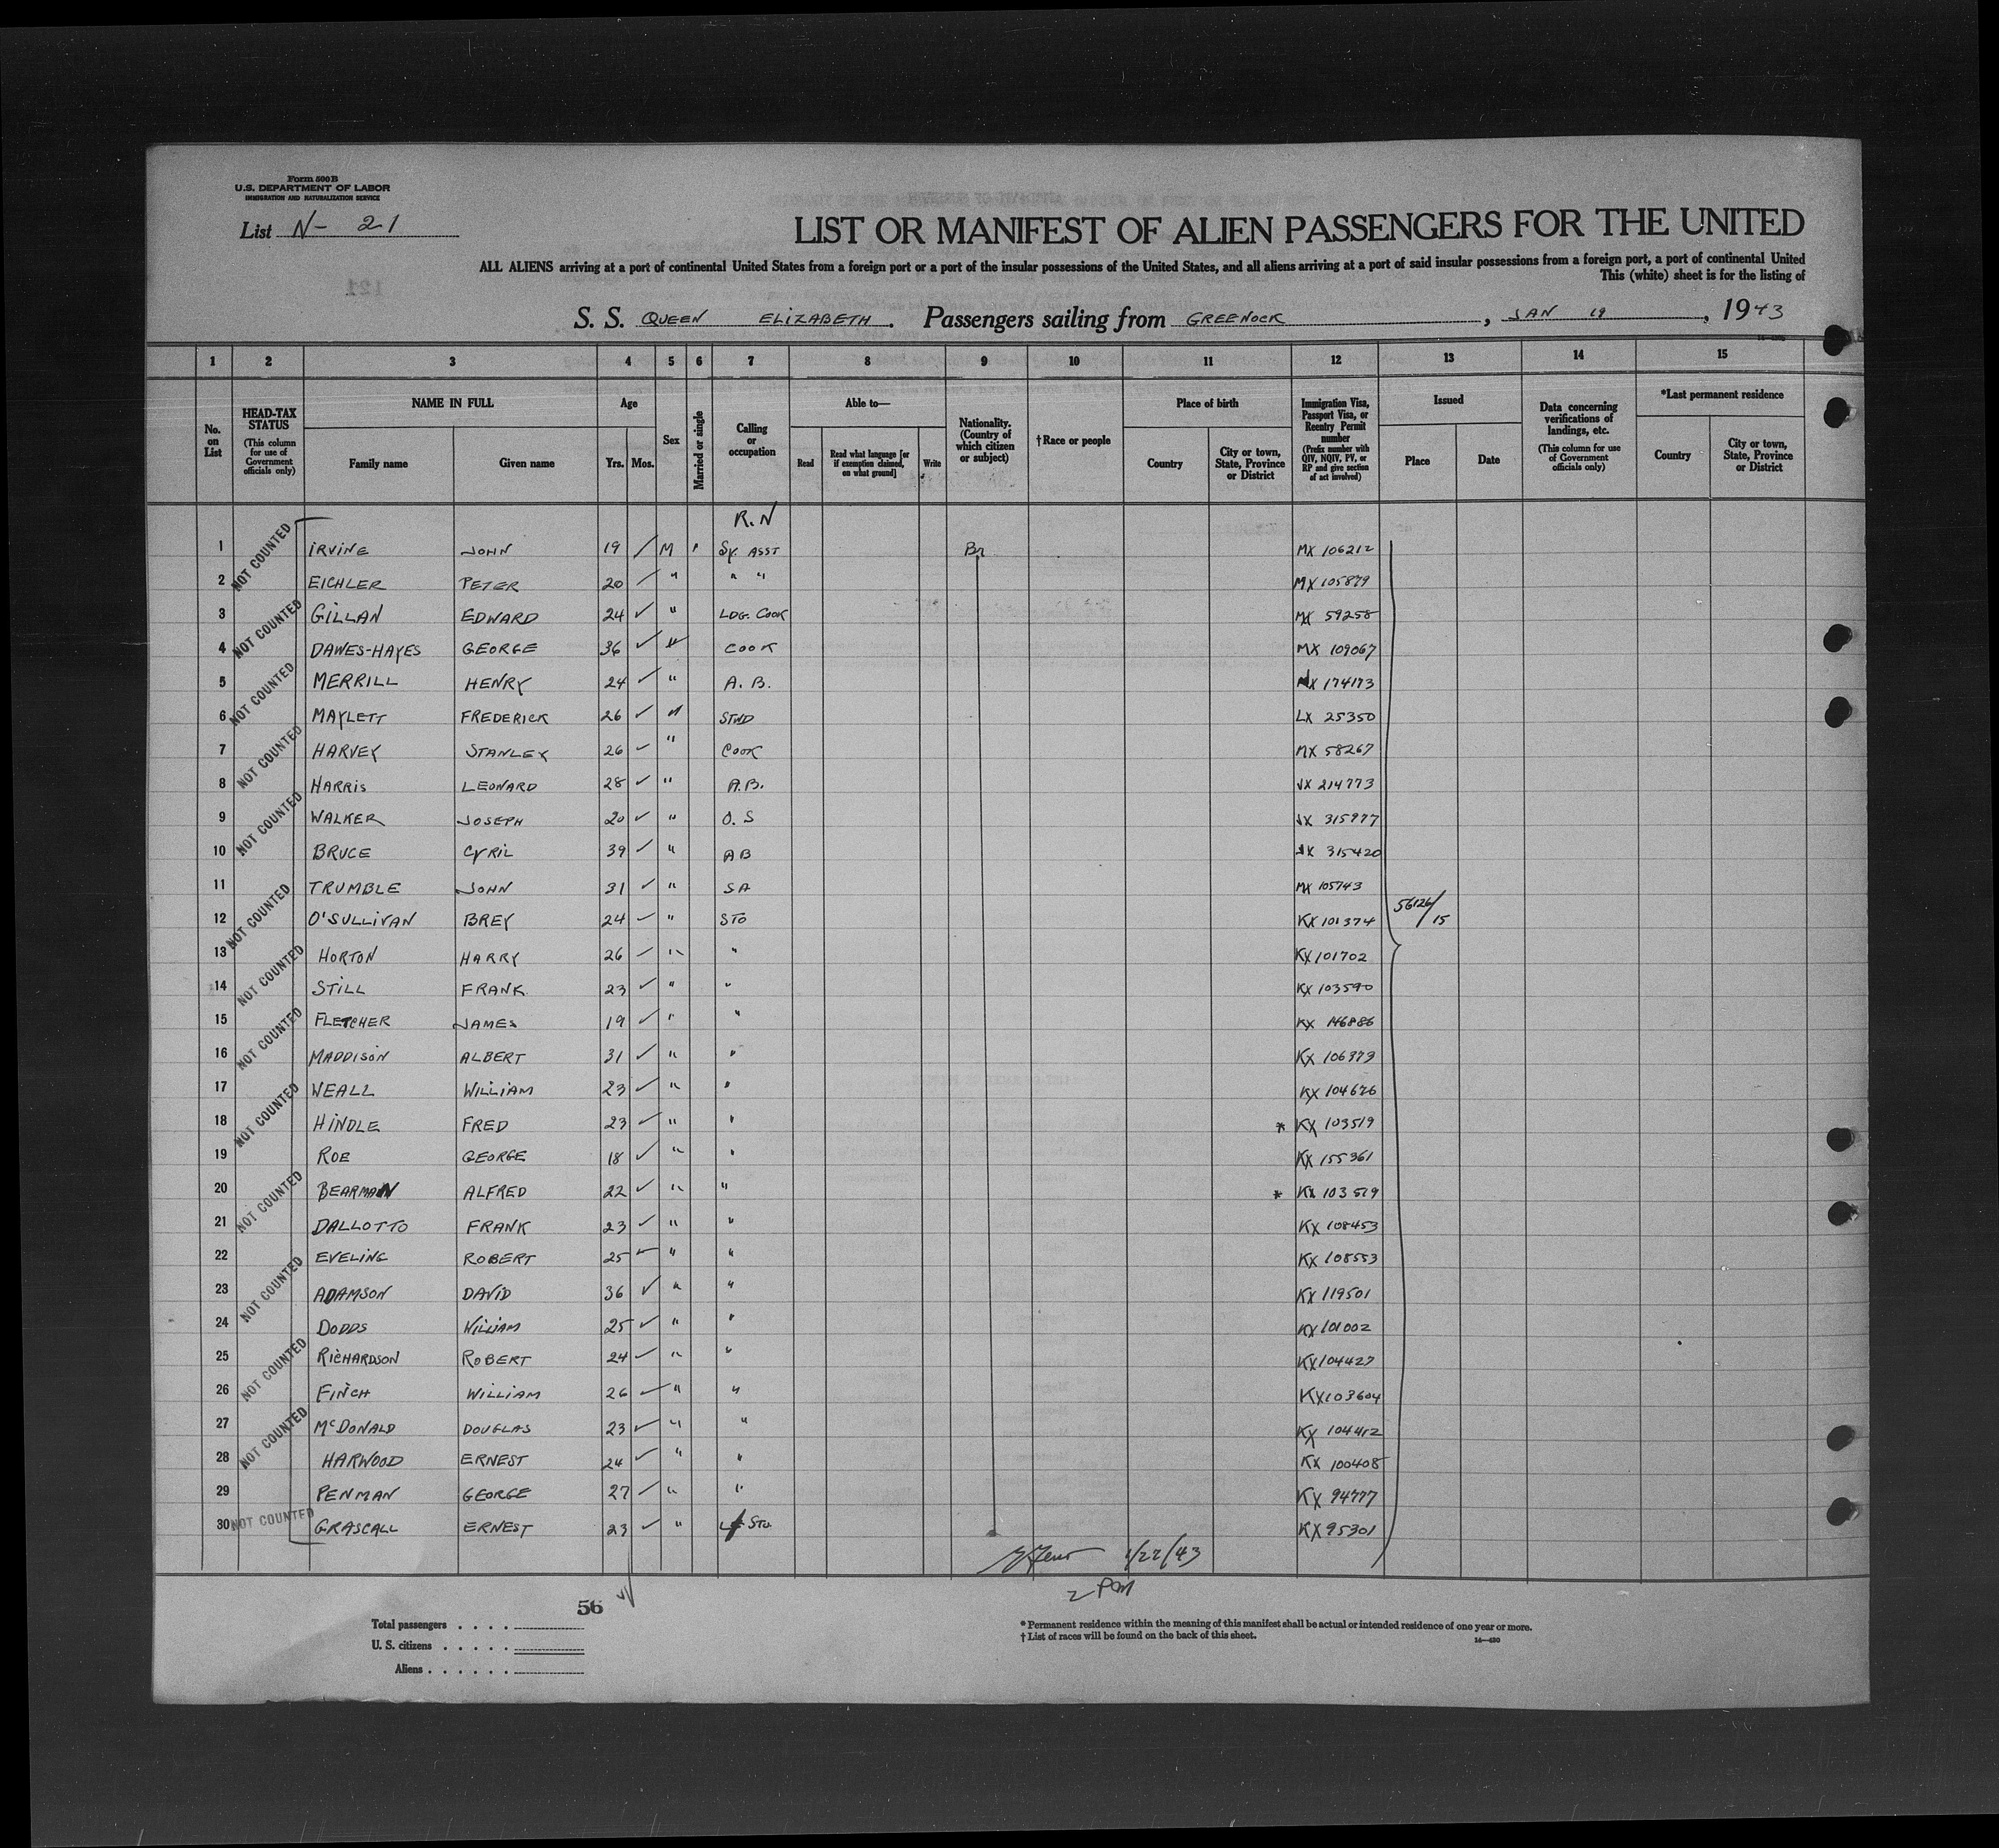 Form 500 B
U.S. DEPARTMENT OF LABOR
IMMIGRATION AND NATURALIZATION SERVICE
List N- 21
LIST OR MANIFEST OF ALIEN PASSENGERS FOR THE UNITED
ALL ALIENS arriving at a port of continental United States from a foreign port or a port of the insular possessions of the United States, and all aliens arriving at a port of said insular possessions from a foreign port, a port of continental United
This (white) sheet is for the listing of
121
S. S. QUEEN ELIZABETH. Passengers sailing from GREENOCK, JAN 19, 1943
1 2 3 4 5 6 7 8 9 10 11 12 13 14 15
No. on List
HEAD-TAX STATUS (This column for use of Government officials only)
NAME IN FULL
Family name Given name
Age
Yrs. Mos.
Sex
Married or single
Calling or occupation
Able to—
Read Read what language [or if exemption claimed, on what ground] Write
Nationality. (Country of which citizen or subject)
†Race or people
Place of birth
Country City or town, State, Province or District
Immigration Visa, Passport Visa, or Reentry Permit number (Prefix number with QIV, NQIV, PV, or RP and give section of act involved)
Issued
Place Date
Data concerning verifications of landings, etc. (This column for use of Government officials only)
*Last permanent residence
Country City or town, State, Province or District
R.N
1 IRVINE JOHN 19 M Sy. ASST Br MX 106212
2 EICHLER PETER 20 " " " MX 105879
3 GILLAN EDWARD 24 " LDG. COOK MX 59258
4 DAWES-HAYES GEORGE 36 " COOK MX 109067
5 MERRILL HENRY 24 " A. B. 174173
6 MAYLETT FREDERICK 26 " STWD LX 25350
7 HARVEY STANLEY 26 " COOK MX 58267
8 HARRIS LEONARD 28 " A.B. JX 214773
9 WALKER JOSEPH 20 " O. S JX 315977
10 BRUCE CYRIL 39 " AB JX 315420
11 TRUMBLE JOHN 31 " SA MX 105743
12 O'SULLIVAN BREY 24 " STO KX 101374 56126/15
13 HORTON HARRY 26 " " KX 101702
14 STILL FRANK 23 " " KX 103590
15 FLETCHER JAMES 19 " " KX 146886
16 MADDISON ALBERT 31 " " KX 106379
17 WEALL WILLIAM 23 " " KX 104626
18 HINDLE FRED 23 " " * KX 103519
19 ROE GEORGE 18 " " KX 155361
20 BEARMAN ALFRED 22 " " * KX 103519
21 DALLOTTO FRANK 23 " " KX 108453
22 EVELING ROBERT 25 " " KX 108553
23 ADAMSON DAVID 36 " " KX 119501
24 DODDS WILLIAM 25 " " KX 101002
25 RICHARDSON ROBERT 24 " " KX 104427
26 FINCH WILLIAM 26 " " KX 103604
27 McDONALD DOUGLAS 23 " " KX 104412
28 HARWOOD ERNEST 24 " " KX 100408
29 PENMAN GEORGE 27 " " KX 94777
30 GRASCALL ERNEST 23 " STO. KX 95301
NOT COUNTED
NOT COUNTED
NOT COUNTED
NOT COUNTED
NOT COUNTED
NOT COUNTED
NOT COUNTED
NOT COUNTED
NOT COUNTED
NOT COUNTED
NOT COUNTED
NOT COUNTED
NOT COUNTED
NOT COUNTED
1/22/43
2 PM
56
Total passengers
U. S. citizens
Aliens
* Permanent residence within the meaning of this manifest shall be actual or intended residence of one year or more.
† List of races will be found on the back of this sheet.
16—430